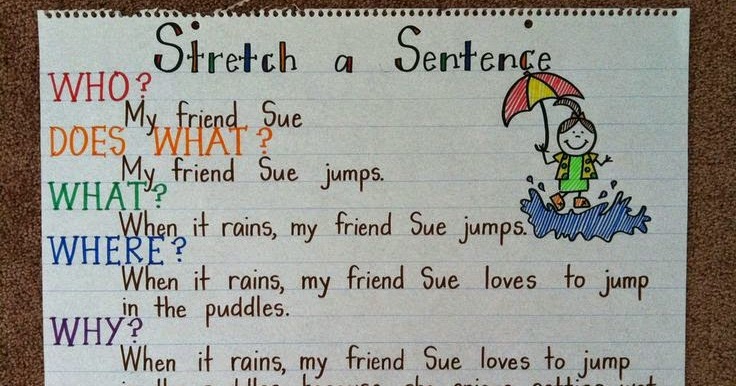 Stretch a Sentence
WHO?
My friend Sue
DOES WHAT?
My friend Sue jumps.
WHAT?
When it rains, my friend Sue jumps.
WHERE?
When it rains, my friend Sue loves to jump
in the puddles.
WHY?
When it rains, my friend Sue loves to jump
in the puddles because she enjoys getting wet